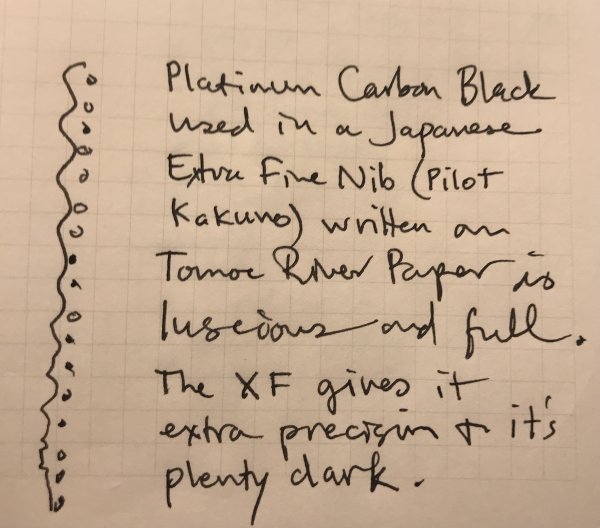 Platinum Carbon Black
used in a Japanese
Extra Fine Nib (Pilot
Kakuno) written on
Tomoe River Paper is
luscious and full.
The XF gives it
extra precision + it's
plenty dark.